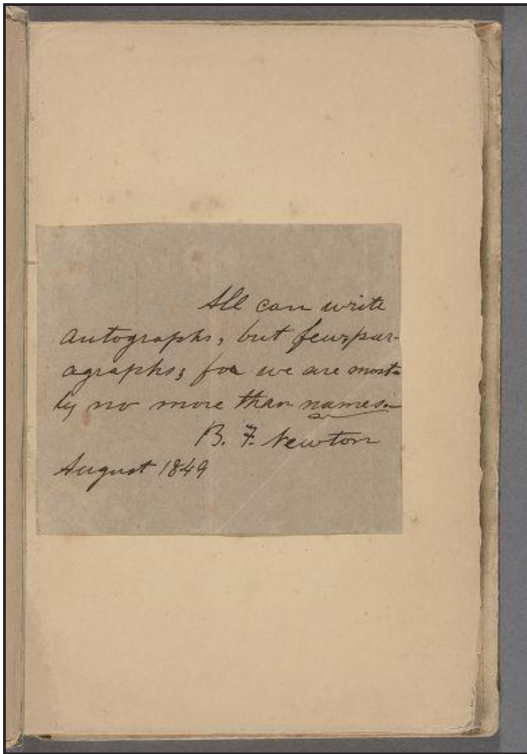 All can write
autographs, but few par-
agraphs; for we are most-
ly no more than names.
B. F. Newton
August 1849